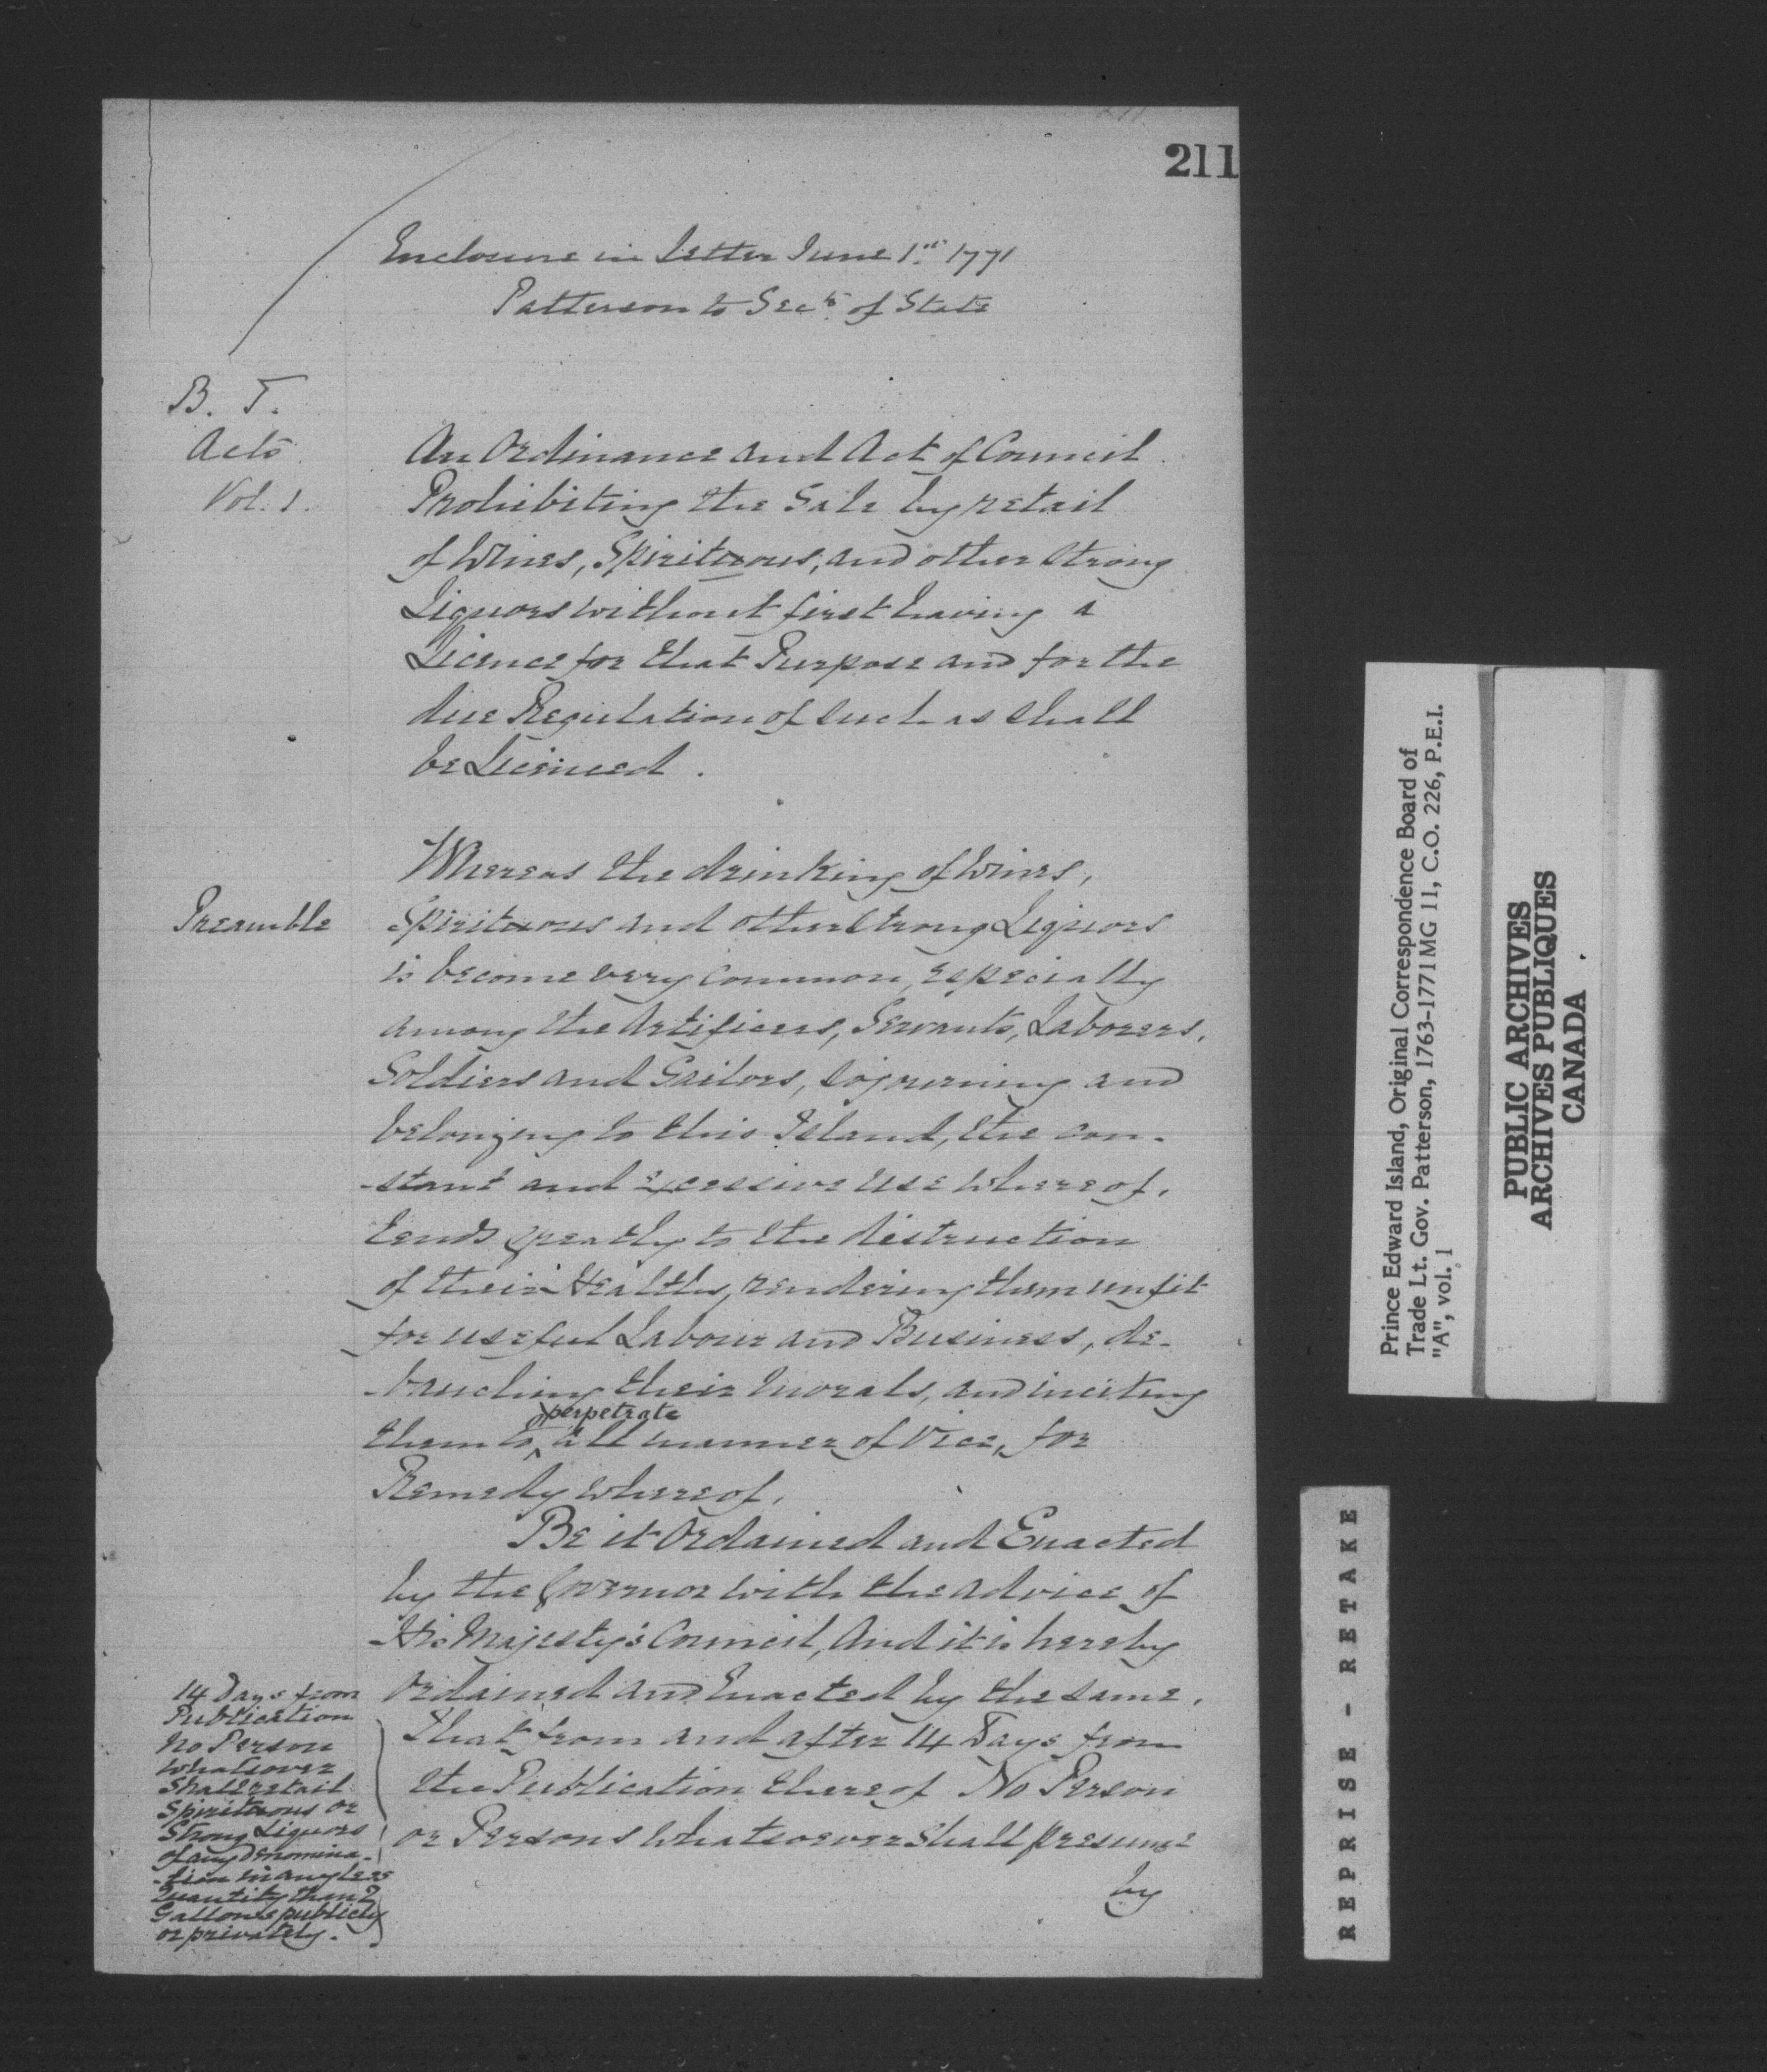 211
Enclosure in Letter June 1st 1771
Patterson to Secy of State
B. T.
Acts
Vol. 1.
An Ordinance and Act of Council
Prohibiting the Sale by retail
of Wines, Spirituous, and other strong
Liquors without first having a
Licence for that Purpose and for the
due Regulation of such as shall
be Licenced.
Preamble
Whereas the drinking of Wines,
Spirituous and other Strong Liquors
is become very common, especially
among the Artificers, Servants, Laborers,
Soldiers and Sailors, sojourning and
belonging to this Island, the con-
-stant and excessive use whereof,
tends greatly to the distruction
of their Healths, rendering them unfit
for useful Labour and Business, de-
-bauching their Morals, and inciting
them to perpetrate all manner of Vice, for
Remedy whereof,
Be it Ordained and Enacted
by the Governor with the advice of
His Majesty's Council, And it is hereby
Ordained and Enacted by the same,
That from and after 14 Days from
the Publication thereof No Person
or Persons Whatsoever Shall presume
by
14 Days from
Publication
No Person
Whatsover
Shall retail
Spirituous or
Strong Liquors
of any Denomina-
-tion in any less
Quantity than 2
Gallons publicly
or privately.
Prince Edward Island, Original Correspondence Board of
Trade Lt. Gov. Patterson, 1763-1771 MG 11, C.O. 226, P.E.I.
"A", vol. 1
PUBLIC ARCHIVES
ARCHIVES PUBLIQUES
CANADA
REPRISE - RETAKE